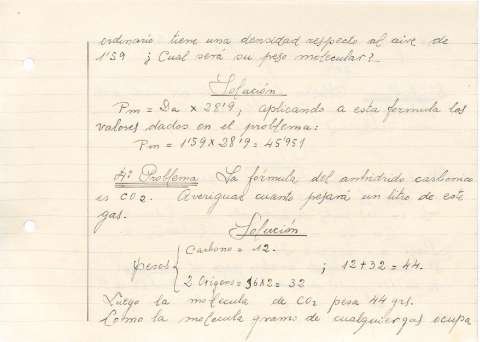 ordinario tiene una densidad respecto al aire de
1'59 ¿Cual será su peso molecular?
Solución
Pm = Da x 28'9, aplicando a esta formula los
valores dados en el problema:
Pm = 1'59 x 28'9 = 45'951
4º Problema La fórmula del anhidrido carbonico
es CO2. Averiguar cuanto pesará un litro de este
gas.
Solución
pesos { Carbono = 12.
2 Oxigeno = 16x2 = 32 ; 12+32 = 44.
Luego la molecula de CO2 pesa 44 grs.
Como la molecula gramo de cualquier gas ocupa